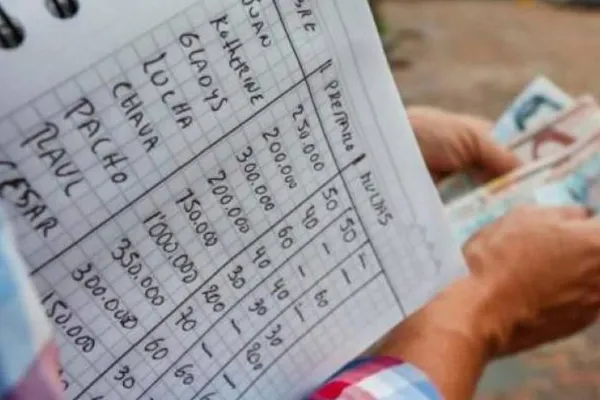 BRE PRETAMO MULTAS
JUAN 250.000 50 50 –
KATHERINE 200.000 40 – –
GLADYS 300.000 60 – 60
LUCHA 200.000 40 40 –
CHAVA 150.000 30 30 30
PACHO 1'000.000 200 – 200
RAUL 350.000 70 – –
CESAR 300.000 60 60
150.000 30